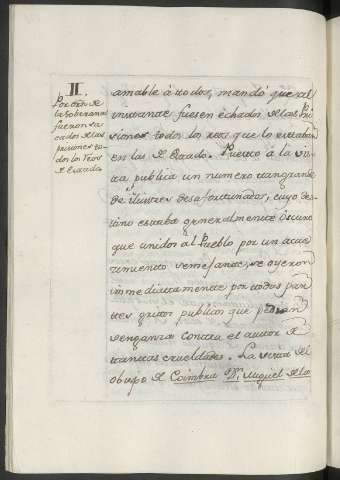 II.
Por orn. de
la Soberana
fueron sa
cados de las
prisiones to-
dos los Reos
de Estado.
amable à todos, mandó que al
instante fuesen èchados de las Pri
siones todos los reos que lo estaban
en las de Estado. Puesto à la vis
ta publica un numero tan grande
de ilustres desafortunados, cuyo des-
tino estaba generalmente oscuro
que unidos al Pueblo por un acae
cimiento semejante, se oyeron
immediatamente por todas par
tes gritos publicos que pedian
venganza contra el autor de
tantas crueldades. La vista del
obispo de Coimbra Dn. Miguel de la